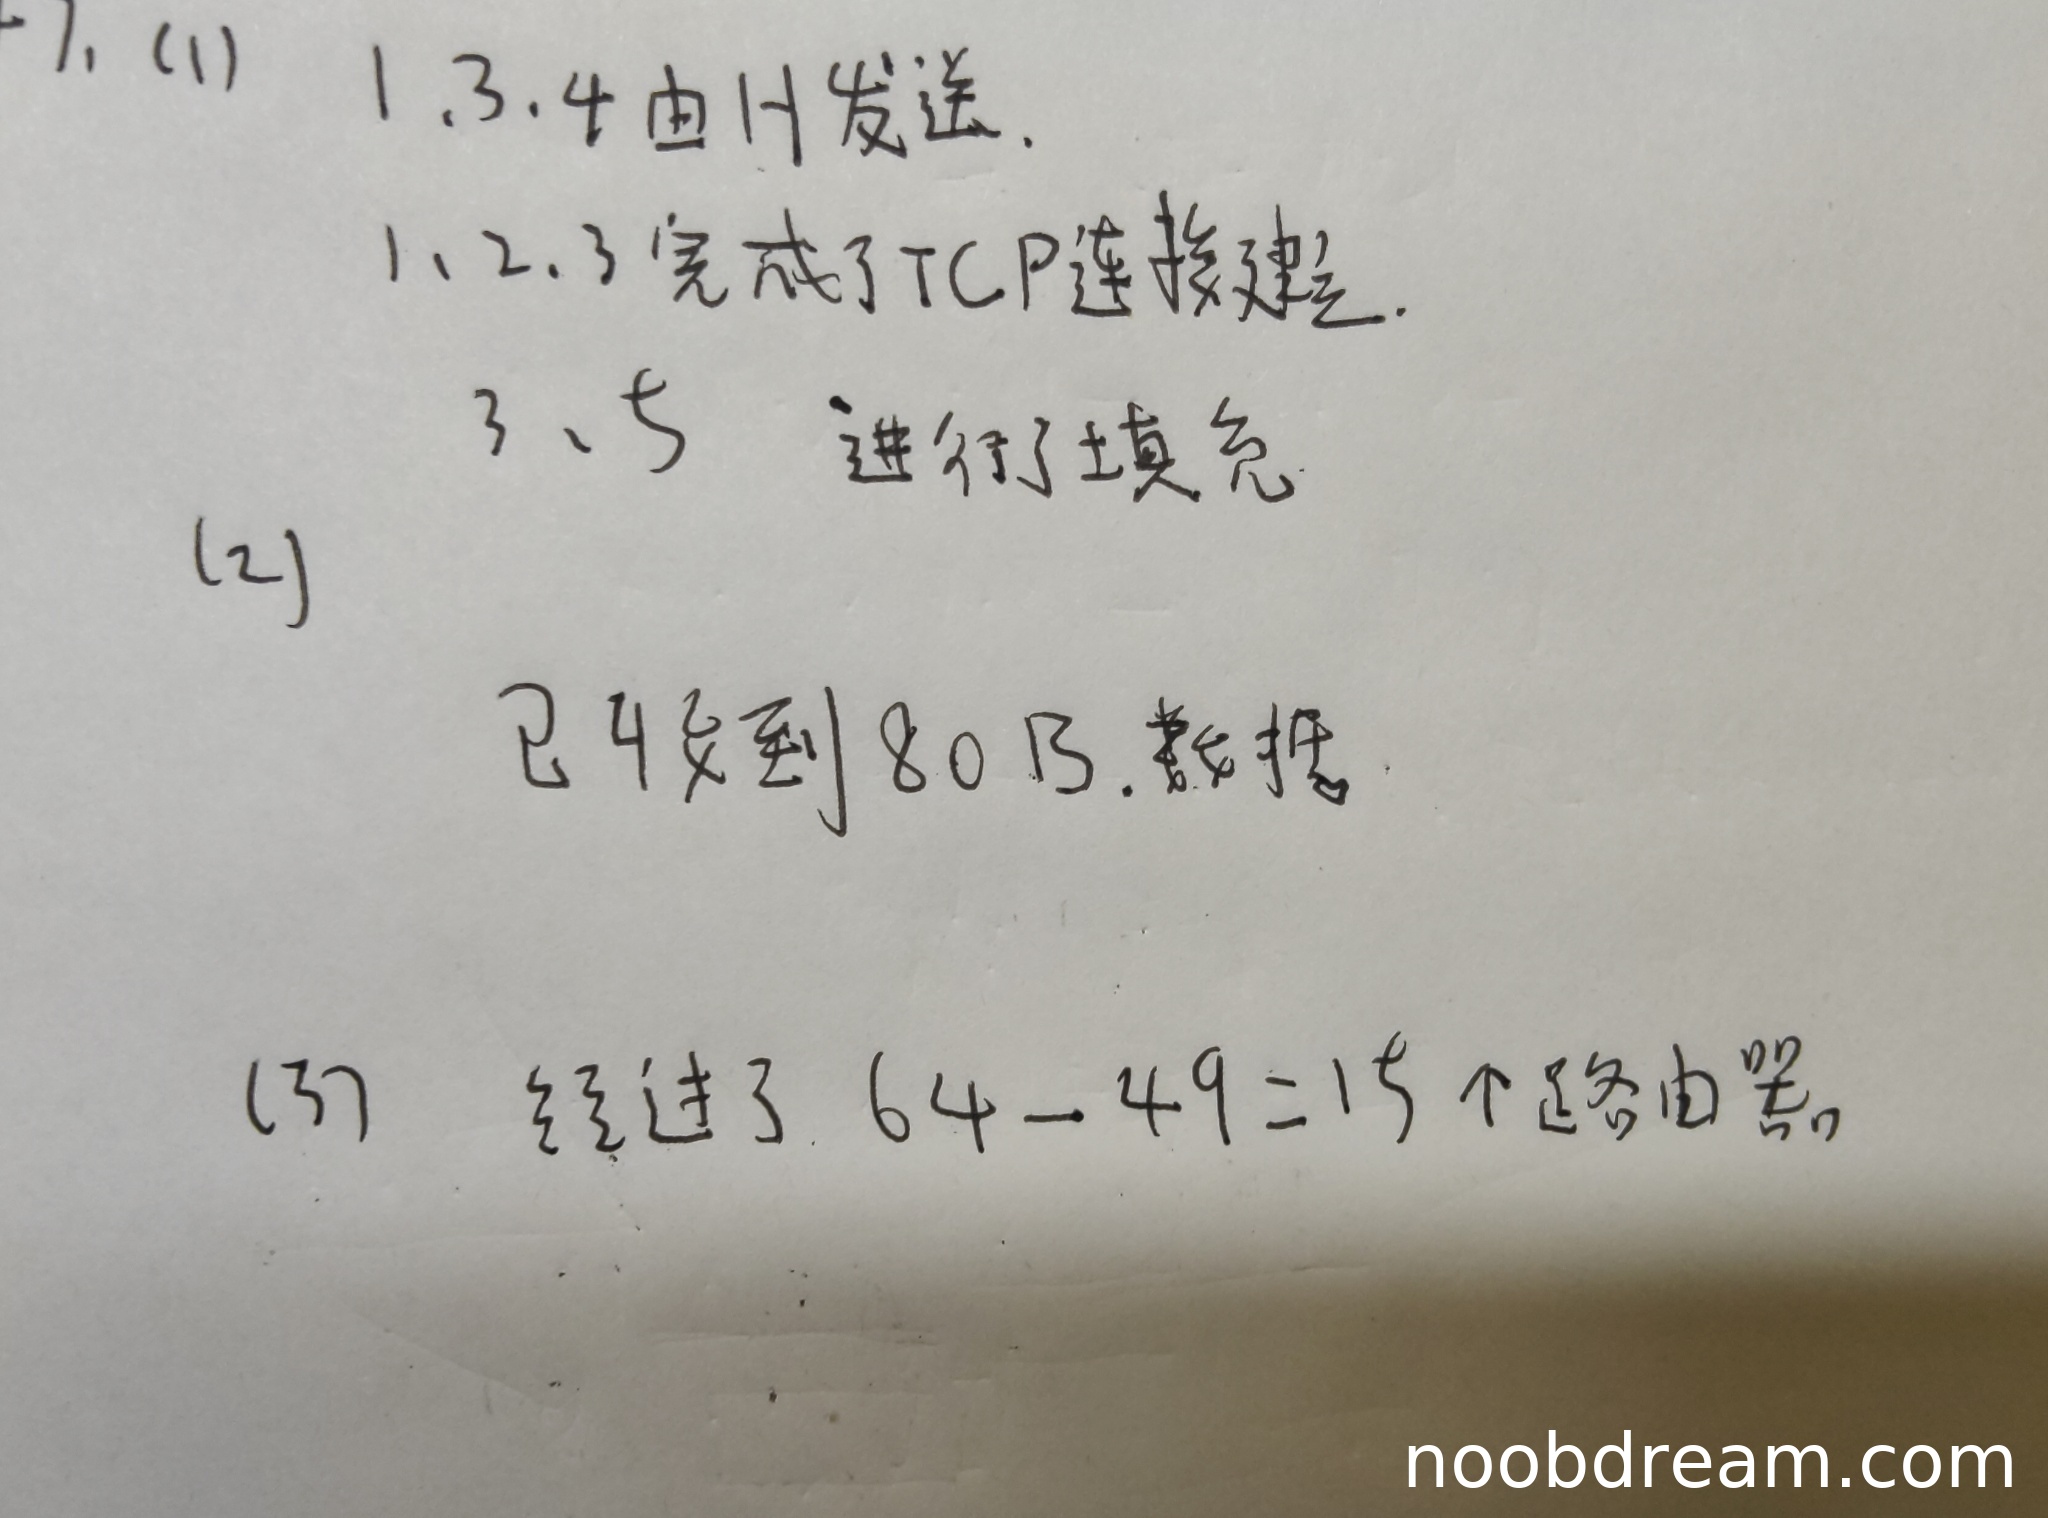 47. (1) 1.3.4由H发送.
1、2、3完成了TCP连接建立.
3、5 进行了填充
(2)
已收到80B.数据.
(3) 经过了 64-49=15个路由器
noobdream.com